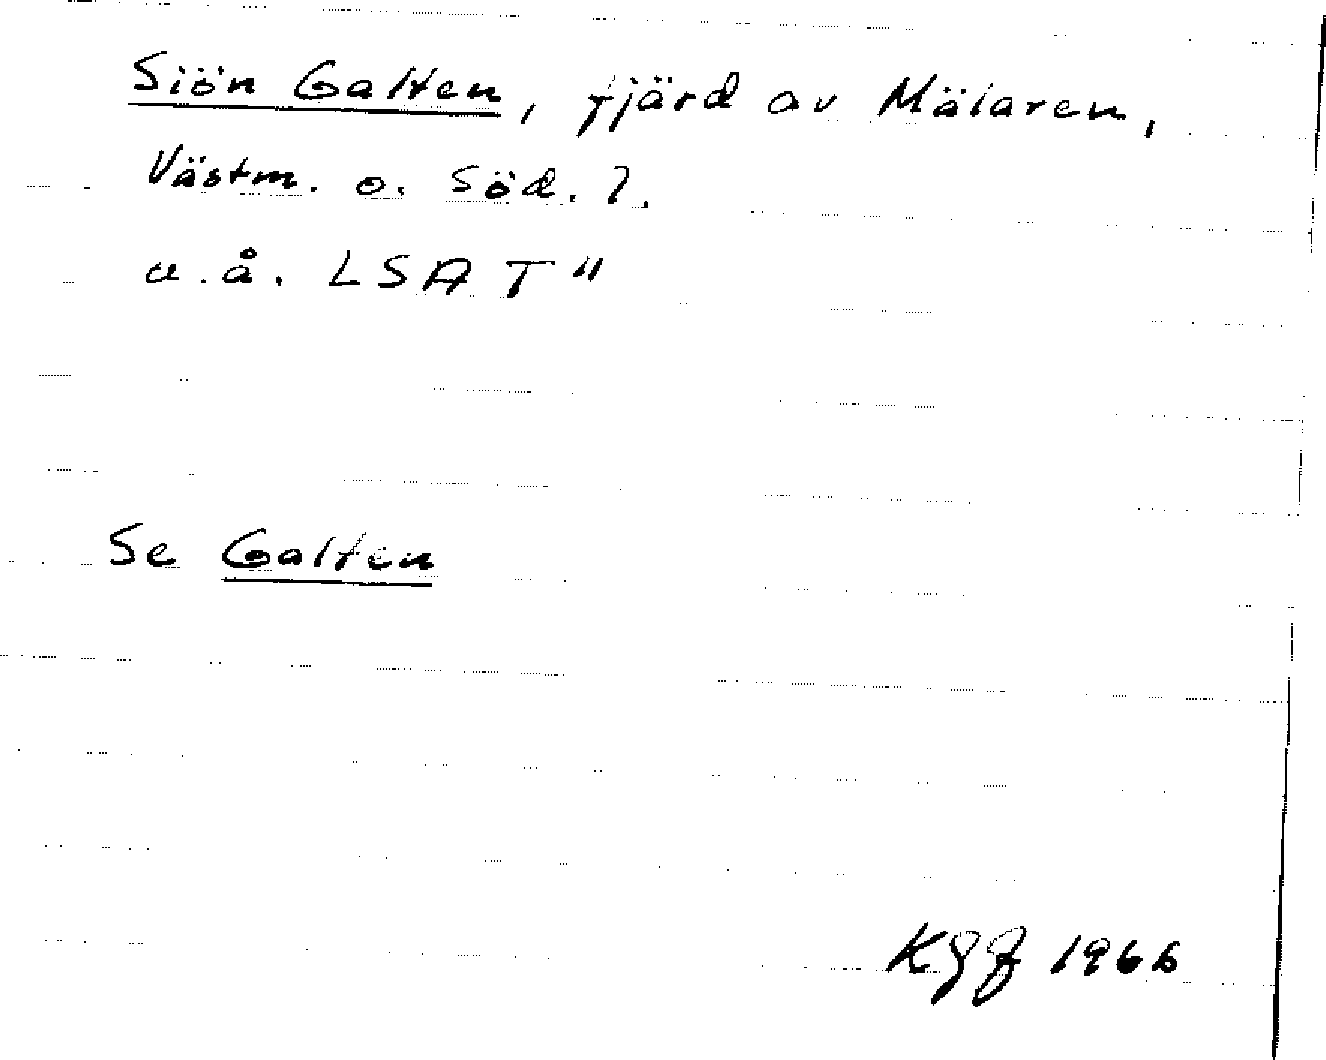 Siön Galten, fjärd av Mälaren,
Västm. o. Söd. l.
u.å. LSA T"
Se Galten
KGG 1966